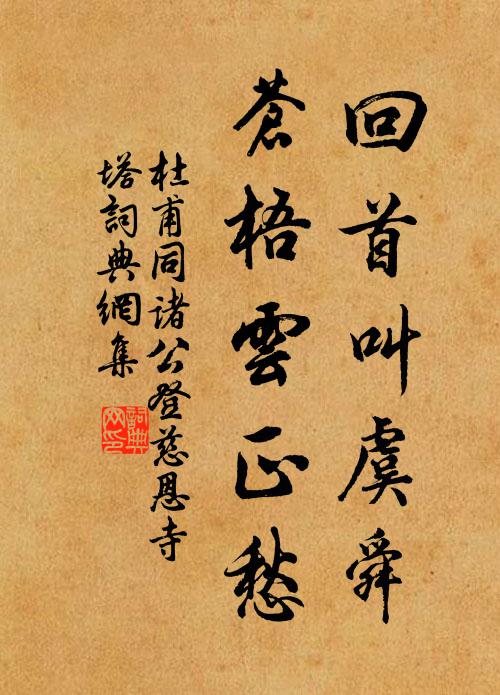 回首叫虞舜
蒼梧雲正愁
杜甫同諸公登慈恩寺
塔詞典網集
詞典
网印